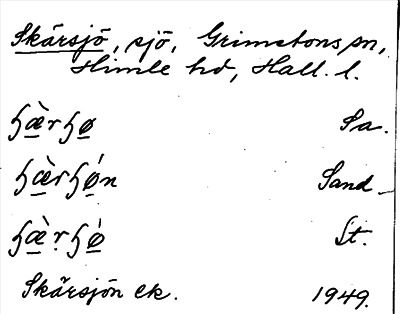 Skärsjö, sjö, Grimetons sn,
Himle hd, Hall. l.
ɧæ̀rɧø Sa.
ɧæ̀rɧǿn Sand
ɧæ̀rɧǿ St.
Skärsjön ek. 1949.